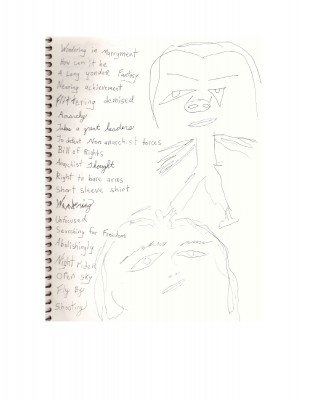 Wandering in Merryment
How can it be
a Long yonder Fantasy
Meaning achievement
demised
Anarchy
Takes a great leaders
To defeat Non anarchist forces
Bill of Rights
Anarchist thought
Right to bare arms
Short sleeve shirt
Wandering
Unfocused
Searching for Freedom
Abolishingly
Night rider
Open sky
Fly By
Shooting